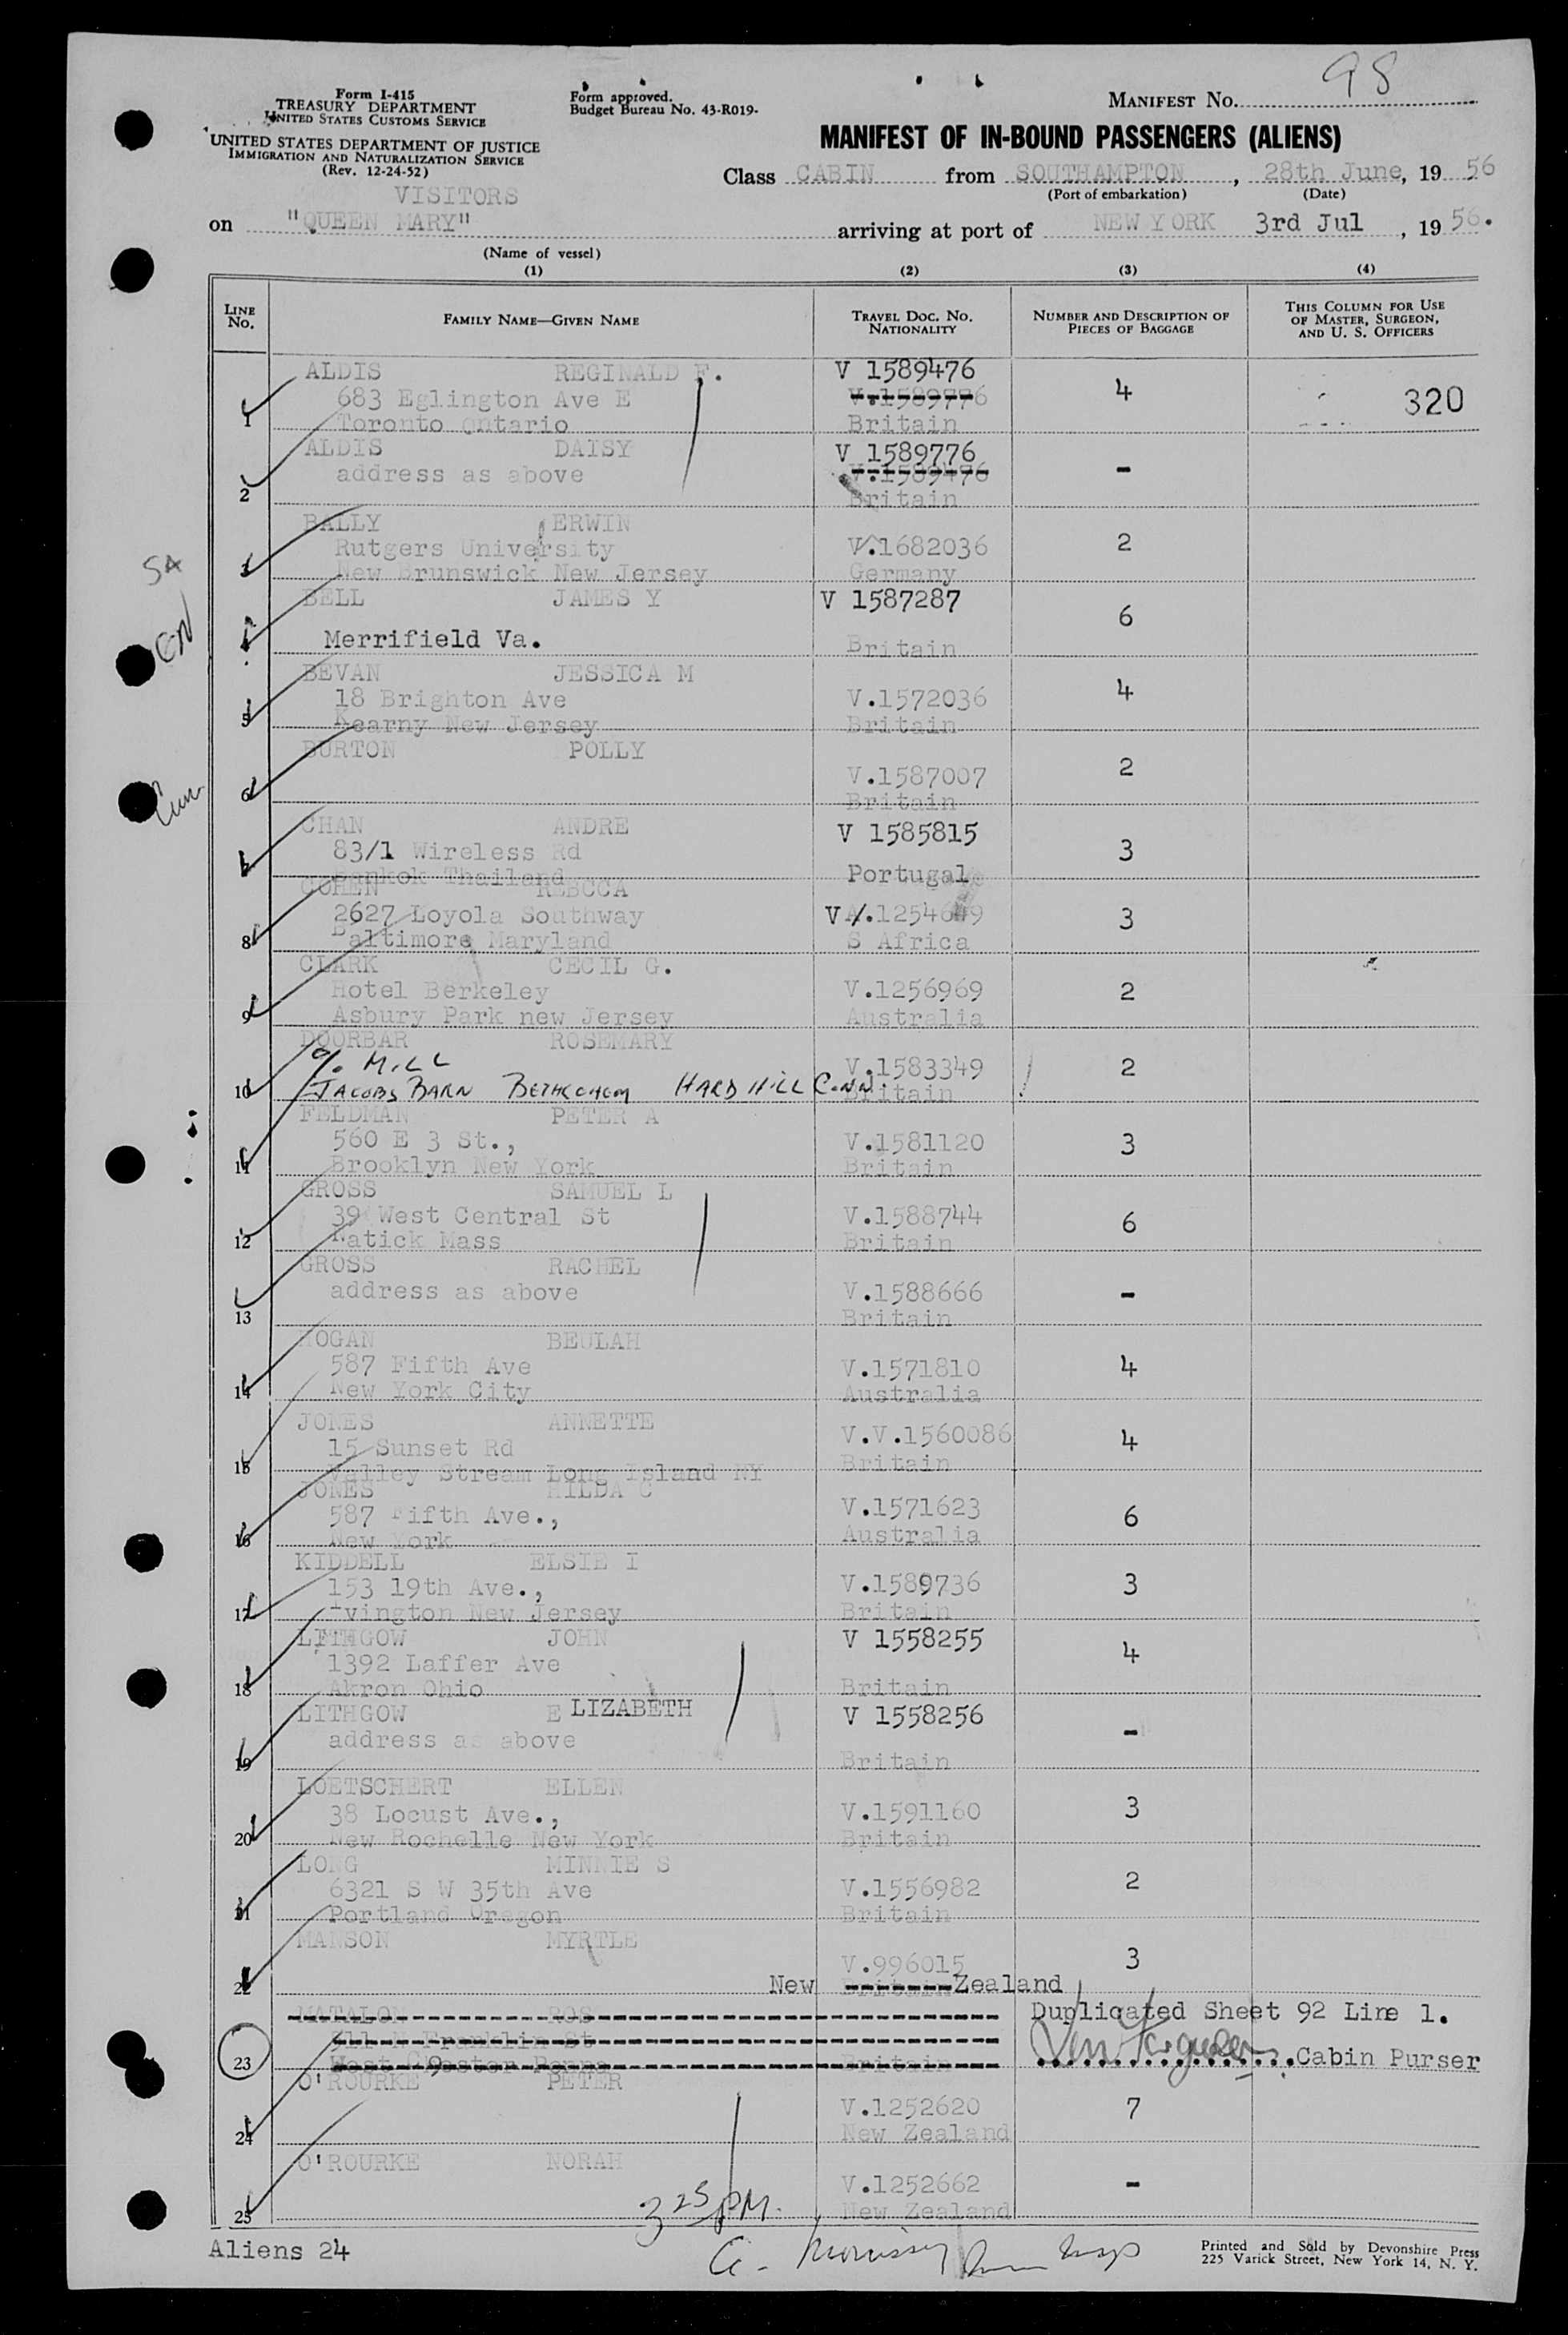 98
Form I-415
TREASURY DEPARTMENT
UNITED STATES CUSTOMS SERVICE
UNITED STATES DEPARTMENT OF JUSTICE
IMMIGRATION AND NATURALIZATION SERVICE
(Rev. 12-24-52)
Form approved.
Budget Bureau No. 43-R019.
MANIFEST No.
MANIFEST OF IN-BOUND PASSENGERS (ALIENS)
Class CABIN from SOUTHAMPTON, 28th June, 19 56
(Port of embarkation) (Date)
VISITORS
on "QUEEN MARY" arriving at port of NEW YORK 3rd Jul, 19 56.
(Name of vessel)
(1) (2) (3) (4)
LINE No. FAMILY NAME—GIVEN NAME TRAVEL DOC. No. NATIONALITY NUMBER AND DESCRIPTION OF PIECES OF BAGGAGE THIS COLUMN FOR USE OF MASTER, SURGEON, AND U. S. OFFICERS
ALDIS REGINALD F. V 1589476
683 Eglington Ave E V.1589776 4 320
1 Toronto Ontario Britain
ALDIS DAISY V 1589776
address as above V.1589476 -
2 Britain
BALLY ERWIN
Rutgers University V.1682036 2
SA
3 New Brunswick New Jersey Germany
BELL JAMES Y V 1587287
6
4 Merrifield Va. Britain
BEVAN JESSICA M
18 Brighton Ave V.1572036 4
5 Kearny New Jersey Britain
BURTON POLLY
V.1587007 2
6 Britain
CHAN ANDRE V 1585815
83/1 Wireless Rd 3
7 Bankok Thailand Portugal
COHEN REBCCA
2627 Loyola Southway V .1254649 3
8 Baltimore Maryland S Africa
CLARK CECIL G.
Hotel Berkeley V.1256969 2
9 Asbury Park new Jersey Australia
DOORBAR ROSEMARY
% MILL V.1583349 2
10 JACOBS BARN BETHLEHEM HARD HILL CONN. Britain
FELDMAN PETER A
560 E 3 St., V.1581120 3
11 Brooklyn New York Britain
GROSS SAMUEL L
39 West Central St V.1588744 6
12 Natick Mass Britain
GROSS RACHEL
address as above V.1588666 -
13 Britain
HOGAN BEULAH
587 Fifth Ave V.1571810 4
14 New York City Australia
JONES ANNETTE
15 Sunset Rd V.V.1560086 4
15 Valley Stream Long Island NY Britain
JONES HILDA C
587 Fifth Ave., V.1571623 6
16 New York Australia
KIDDELL ELSIE I
153 19th Ave., V.1589736 3
17 Ivington New Jersey Britain
LITHGOW JOHN V 1558255
1392 Laffer Ave 4
18 Akron Ohio Britain
LITHGOW E LIZABETH V 1558256
address as above -
19 Britain
LOETSCHERT ELLEN
38 Locust Ave., V.1591160 3
20 New Rochelle New York Britain
LONG MINNIE S
6321 S W 35th Ave V.1556982 2
21 Portland Oregon Britain
MANSON MYRTLE
V.996015 3
22 New Britain Zealand
MATALON ROS Duplicated Sheet 92 Line 1.
911 N Franklin St
23 West Chester Penna Britain Cabin Purser
O'ROURKE PETER
V.1252620 7
24 New Zealand
O'ROURKE NORAH
V.1252662 -
25 New Zealand
3 25 PM.
Aliens 24
Printed and Sold by Devonshire Press
225 Varick Street, New York 14, N. Y.